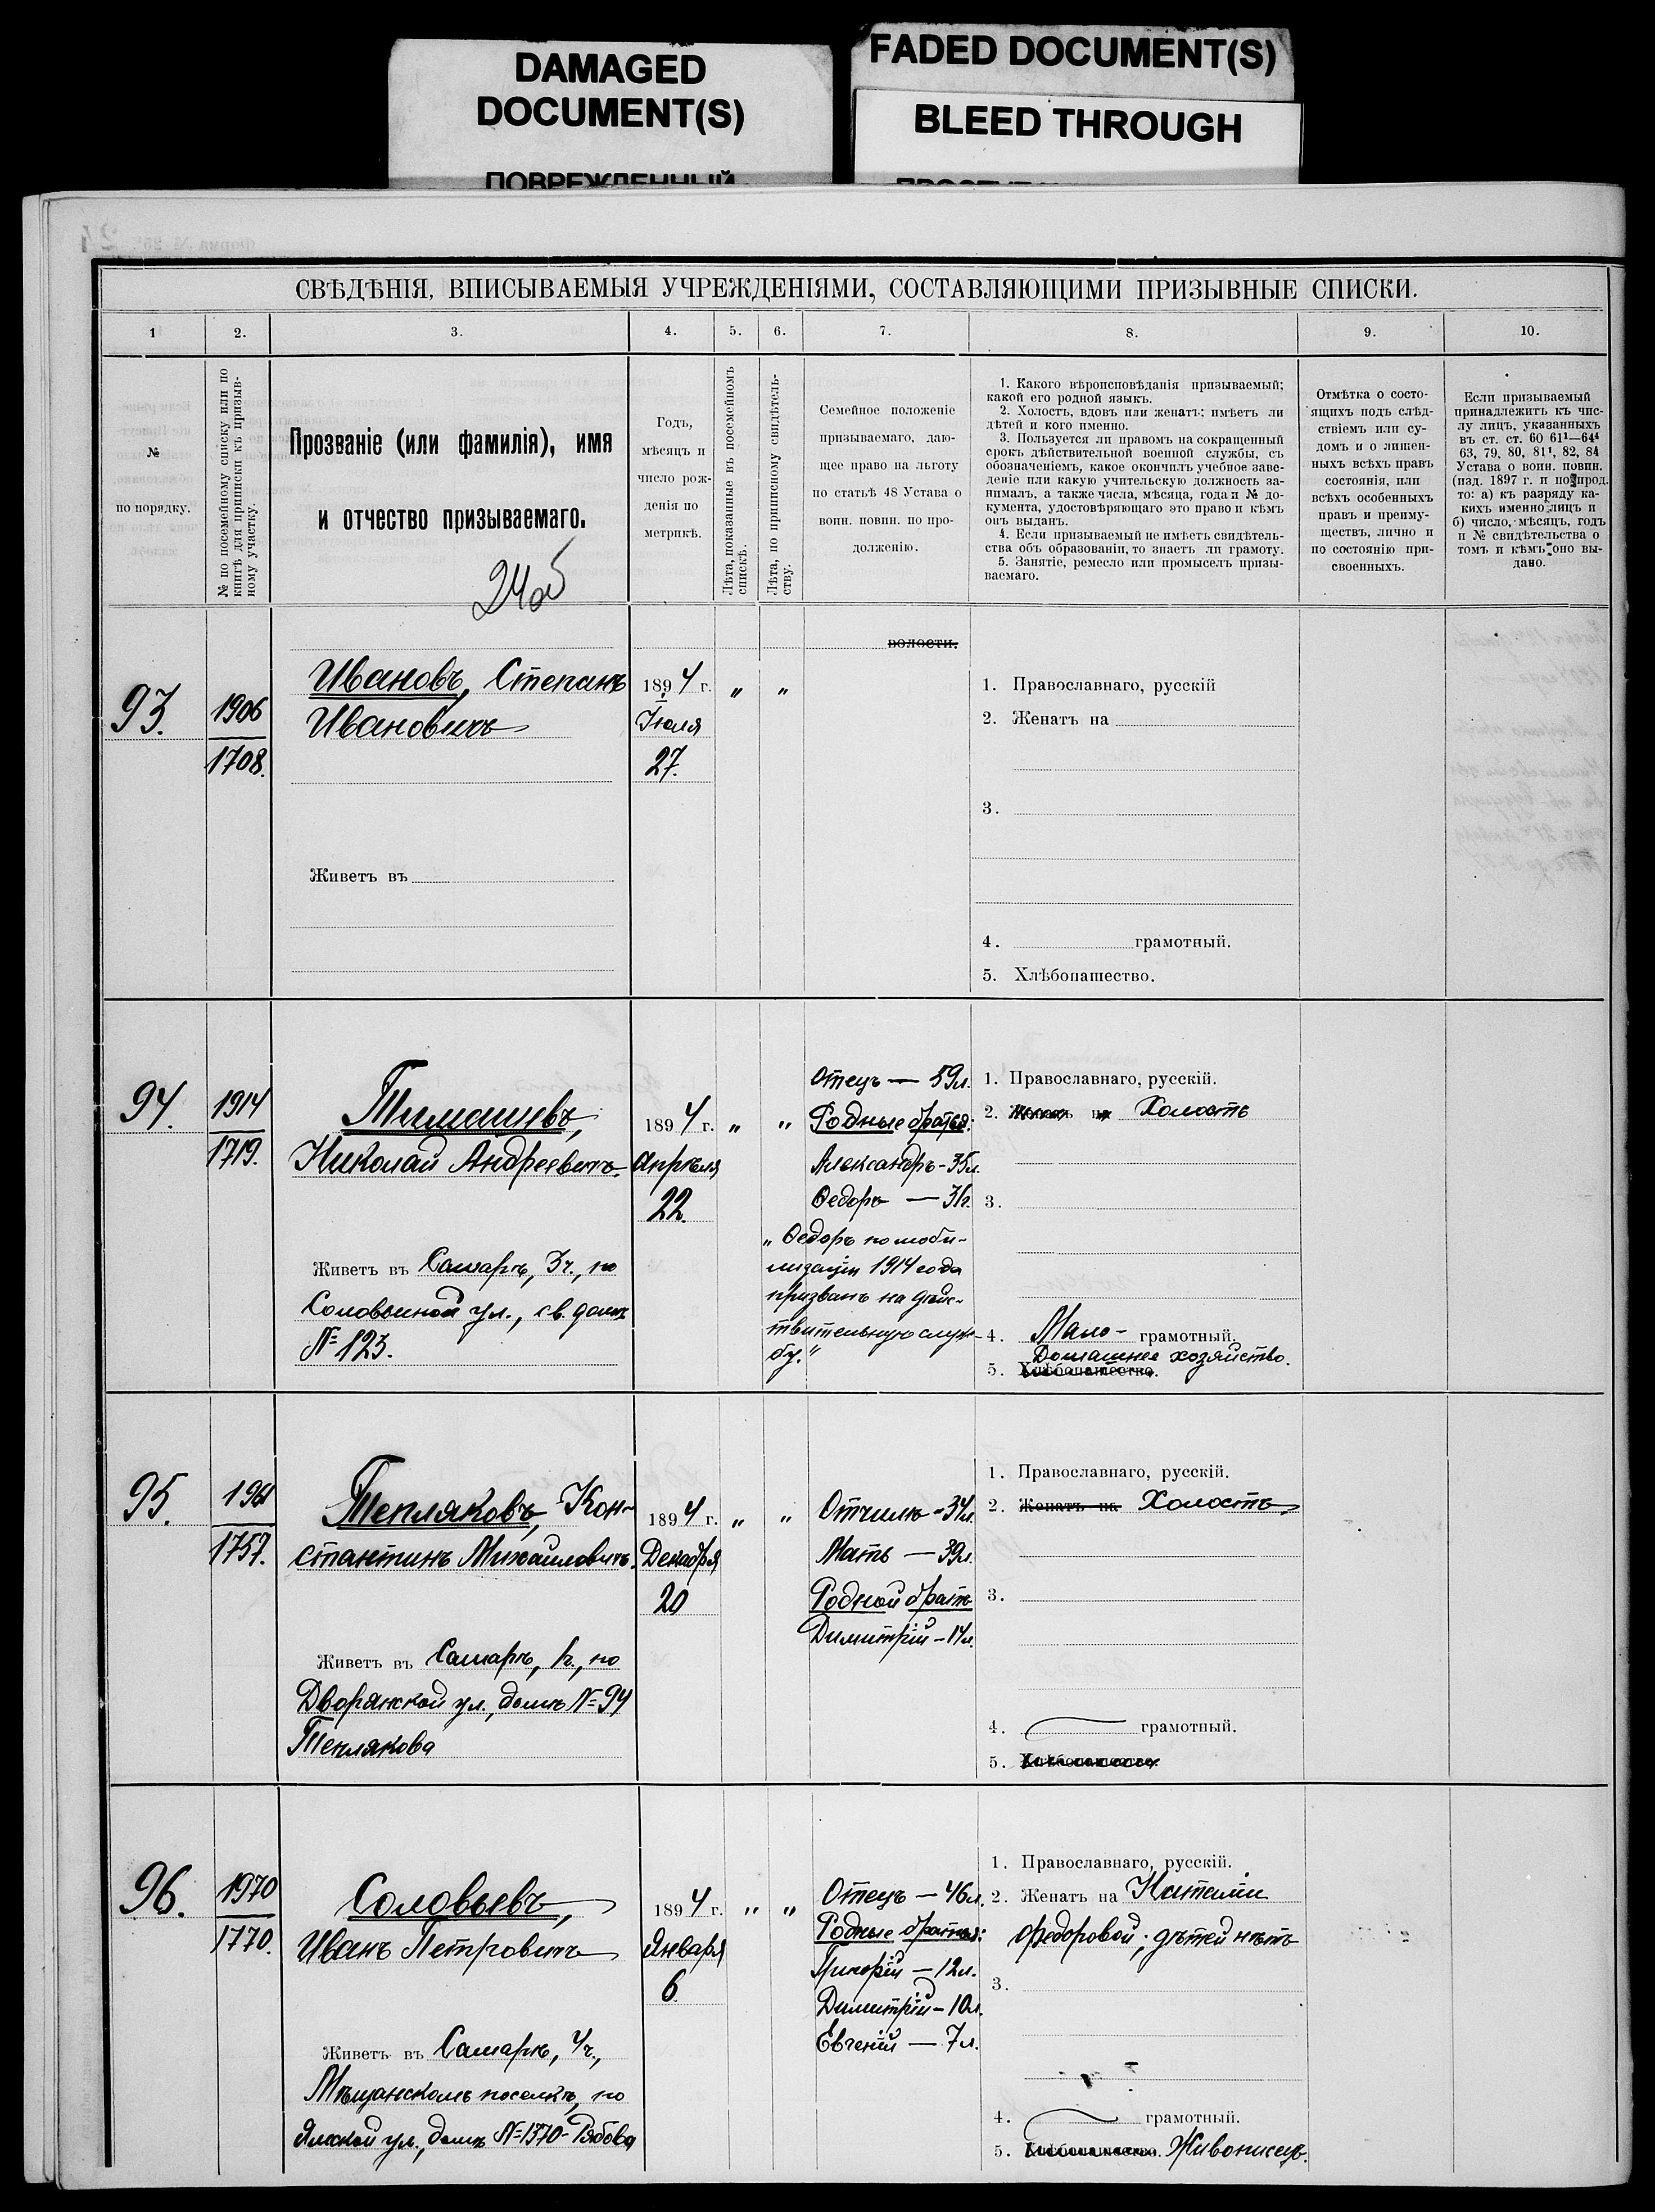 DAMAGED
DOCUMENT(S)
FADED DOCUMENT(S)
BLEED THROUGH
ПОВРЕЖДЕННЫЙ
СВѢДѢНІЯ, ВПИСЫВАЕМЫЯ УЧРЕЖДЕНІЯМИ, СОСТАВЛЯЮЩИМИ ПРИЗЫВНЫЕ СПИСКИ.
1 2. 3. 4. 5. 6. 7. 8. 9. 10.
№
по порядку.
№ по посемейному списку или по
книгѣ для приписки къ призыв-
ному участку.
Прозваніе (или фамилія), имя
и отчество призываемаго.
24об
Годъ,
мѣсяцъ и
число рож-
денія по
метрикѣ.
Лѣта, показанные въ посемейномъ
спискѣ.
Лѣта, по приписному свидѣтель-
ству.
Семейное положеніе
призываемаго, даю-
щее право на льготу
по статьѣ 48 Устава о
воин. повин. по про-
долженію.
1. Какого вѣроисповѣданія призываемый;
какой его родной языкъ.
2. Холостъ, вдовъ или женатъ; имѣетъ ли
дѣтей и кого именно.
3. Пользуется ли правомъ на сокращенный
срокъ дѣйствительной военной службы, съ
обозначеніемъ, какое окончилъ учебное заве-
деніе или какую учительскую должность за-
нималъ, а также числа, мѣсяца, года и № до-
кумента, удостовѣряющаго это право и кѣмъ
онъ выданъ.
4. Если призываемый не имѣетъ свидѣтель-
ства объ образованіи, то знаетъ ли грамоту.
5. Занятіе, ремесло или промыселъ призы-
ваемаго.
Отмѣтка о состо-
ящихъ подъ слѣд-
ствіемъ или су-
домъ и о лишен-
ныхъ всѣхъ правъ
состоянія, или
всѣхъ особенныхъ
правъ и преиму-
ществъ, лично и
по состоянію при-
своенныхъ.
Если призываемый
принадлежитъ къ чис-
лу лицъ, указанныхъ
въ ст. ст. 60 61¹—64⁴
63, 79, 80, 81¹, 82, 84
Устава о воин. повин.
(изд. 1897 г. и по прод.
то: а) къ разряду ка-
кихъ именно лицъ и
б) число, мѣсяцъ, годъ
и № свидѣтельства о
томъ и кѣмъ оно вы-
дано.
93.
1906
1708.
Ивановъ, Степанъ
Ивановичъ
Живетъ въ
1894 г.
Іюля
27.
" "
волости.
1. Православнаго, русскій
2. Женатъ на
3.
4. грамотный.
5. Хлѣбопашество.
94.
1914
1719.
Тимашевъ,
Николай Андреевичъ.
Живетъ въ Самарѣ, 3 ч., по
Соловьиной ул., св. домъ
№ 123.
1894 г.
Апрѣля
22.
" "
Отецъ — 59 л.
Родные братья:
Александръ - 35 л.
Ѳедоръ — 31 г.
„Ѳедоръ по моби-
лизаціи 1914 года
призванъ на дѣйс-
твительную служ-
бу."
1. Православнаго, русскій.
2. Женатъ на Холостъ
3.
4. Мало- грамотный.
Домашнее хозяйство.
5. Хлѣбопашество.
95.
1757.
Тепляковъ, Кон-
стантинъ Михайловичъ.
Живетъ въ Самарѣ, 1 ч., по
Дворянской ул., домъ № 94
Теплякова
1894 г.
Декабря
20
" "
Отчимъ - 34 л.
Мать — 39 л.
Родной братъ
Димитрій - 14 л.
1. Православнаго, русскій.
2. Женатъ на Холостъ
3.
4. грамотный.
5. Хлѣбопашество.
96.
1970
1770.
Соловьевъ,
Иванъ Петровичъ
Живетъ въ Самарѣ, 4 ч.,
Мѣщанскомъ поселкѣ, по
Ямской ул., домъ № 1370 - Рябова
1894 г.
Января
6.
" "
Отецъ — 46 л.
Родные братья:
Григорій — 12 л.
Димитрій — 10 л.
Евгеній — 7 л.
1. Православнаго, русскій.
2. Женатъ на Наталіи
Федоровой; дѣтей нѣтъ
3.
4. грамотный.
5. Хлѣбопашество. Живописецъ.